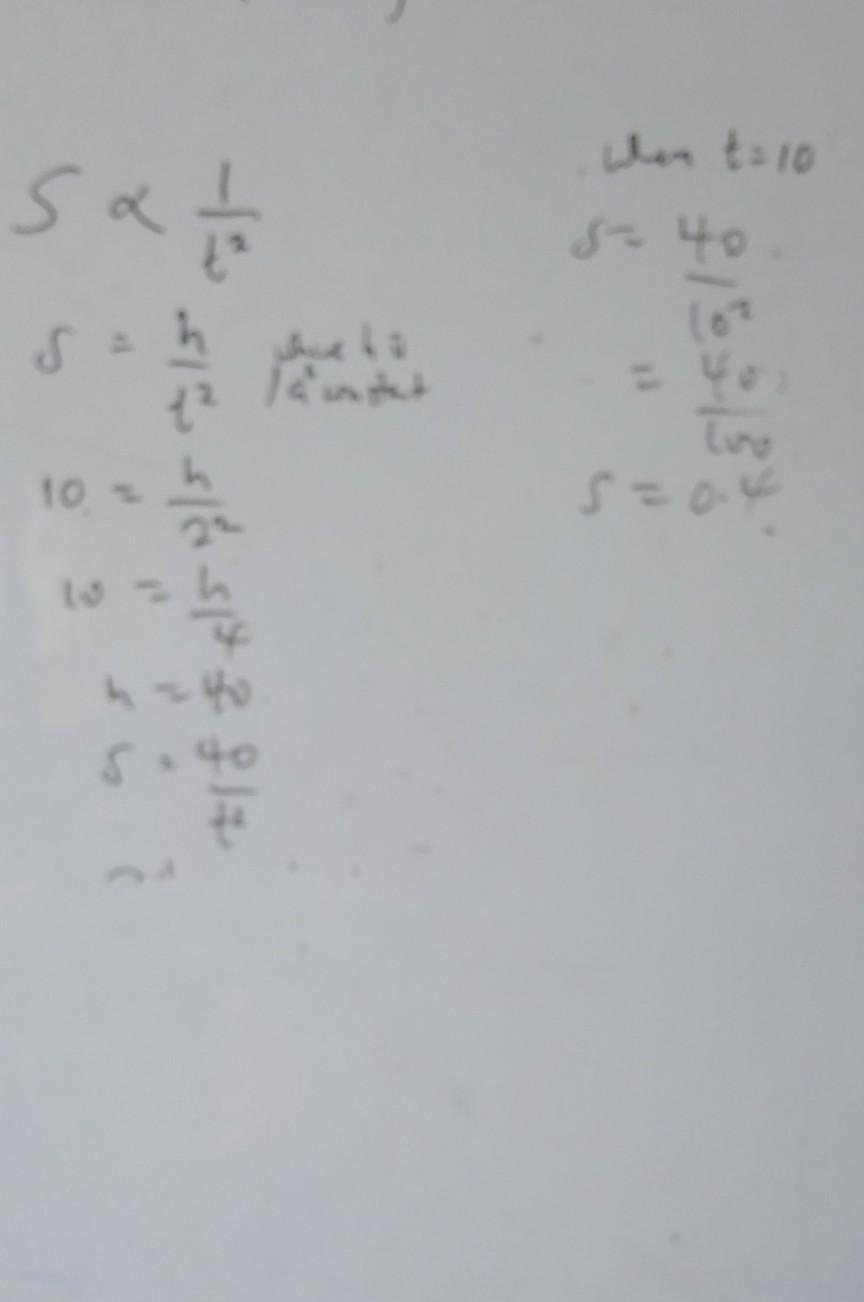 S ∝ 1/t²
S = h/t² where h is
a constant
10 = h/2²
10 = h/4
h = 40
S = 40/t²
when t=10
S = 40/10²
= 40/100
S = 0.4